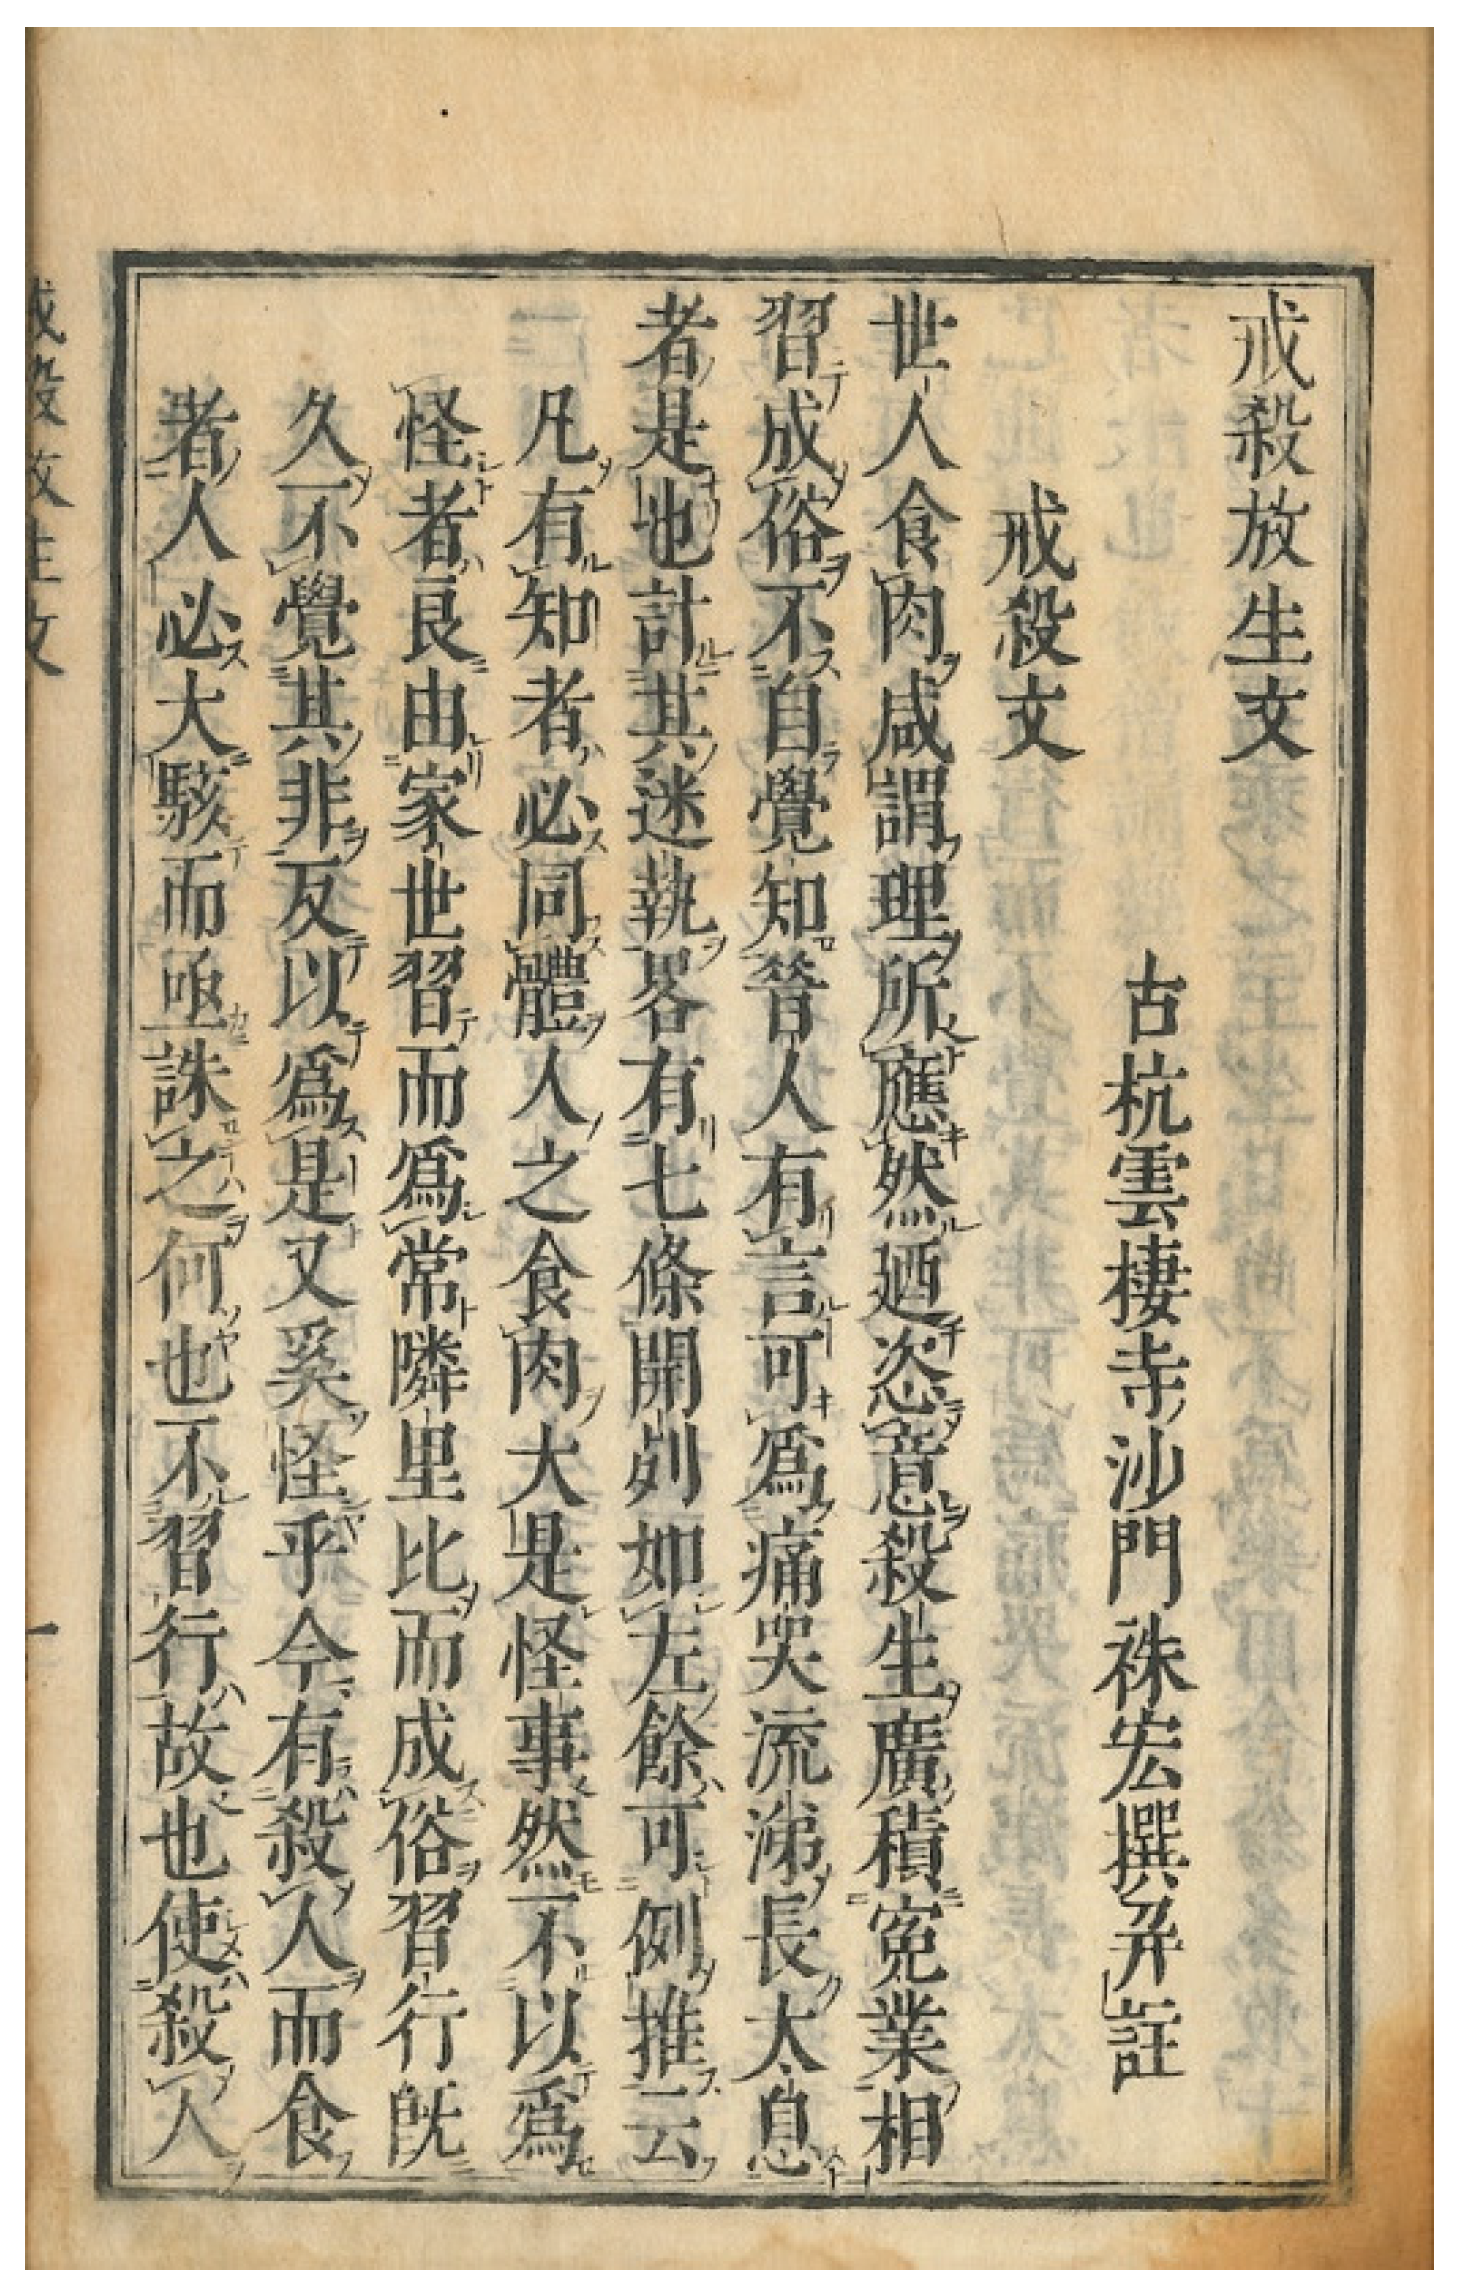 戒殺放生文
古杭雲棲寺沙門袾宏撰并註
戒殺文
世人食肉咸謂理所應然廼恣意殺生廣積寃業相
習成俗不自覺知昔人有言可爲痛哭流涕長太息
者是也計其迷執畧有七條開列如左餘可例推云
凡有知者必同體人之食肉大是怪事然不以爲
怪者良由家世習而爲常隣里比而成俗習行旣
久不覺其非反以爲是又奚怪乎今有殺人而食
者人必大駭而亟誅之何也不習行故也使殺人
戒殺放生文
一